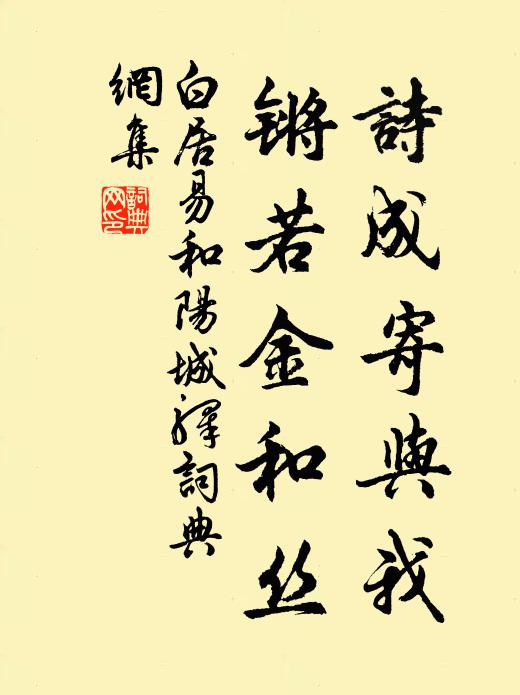 詩成寄與我
锵若金和丝
白居易和陽城驛詞典
網集
詞典網印